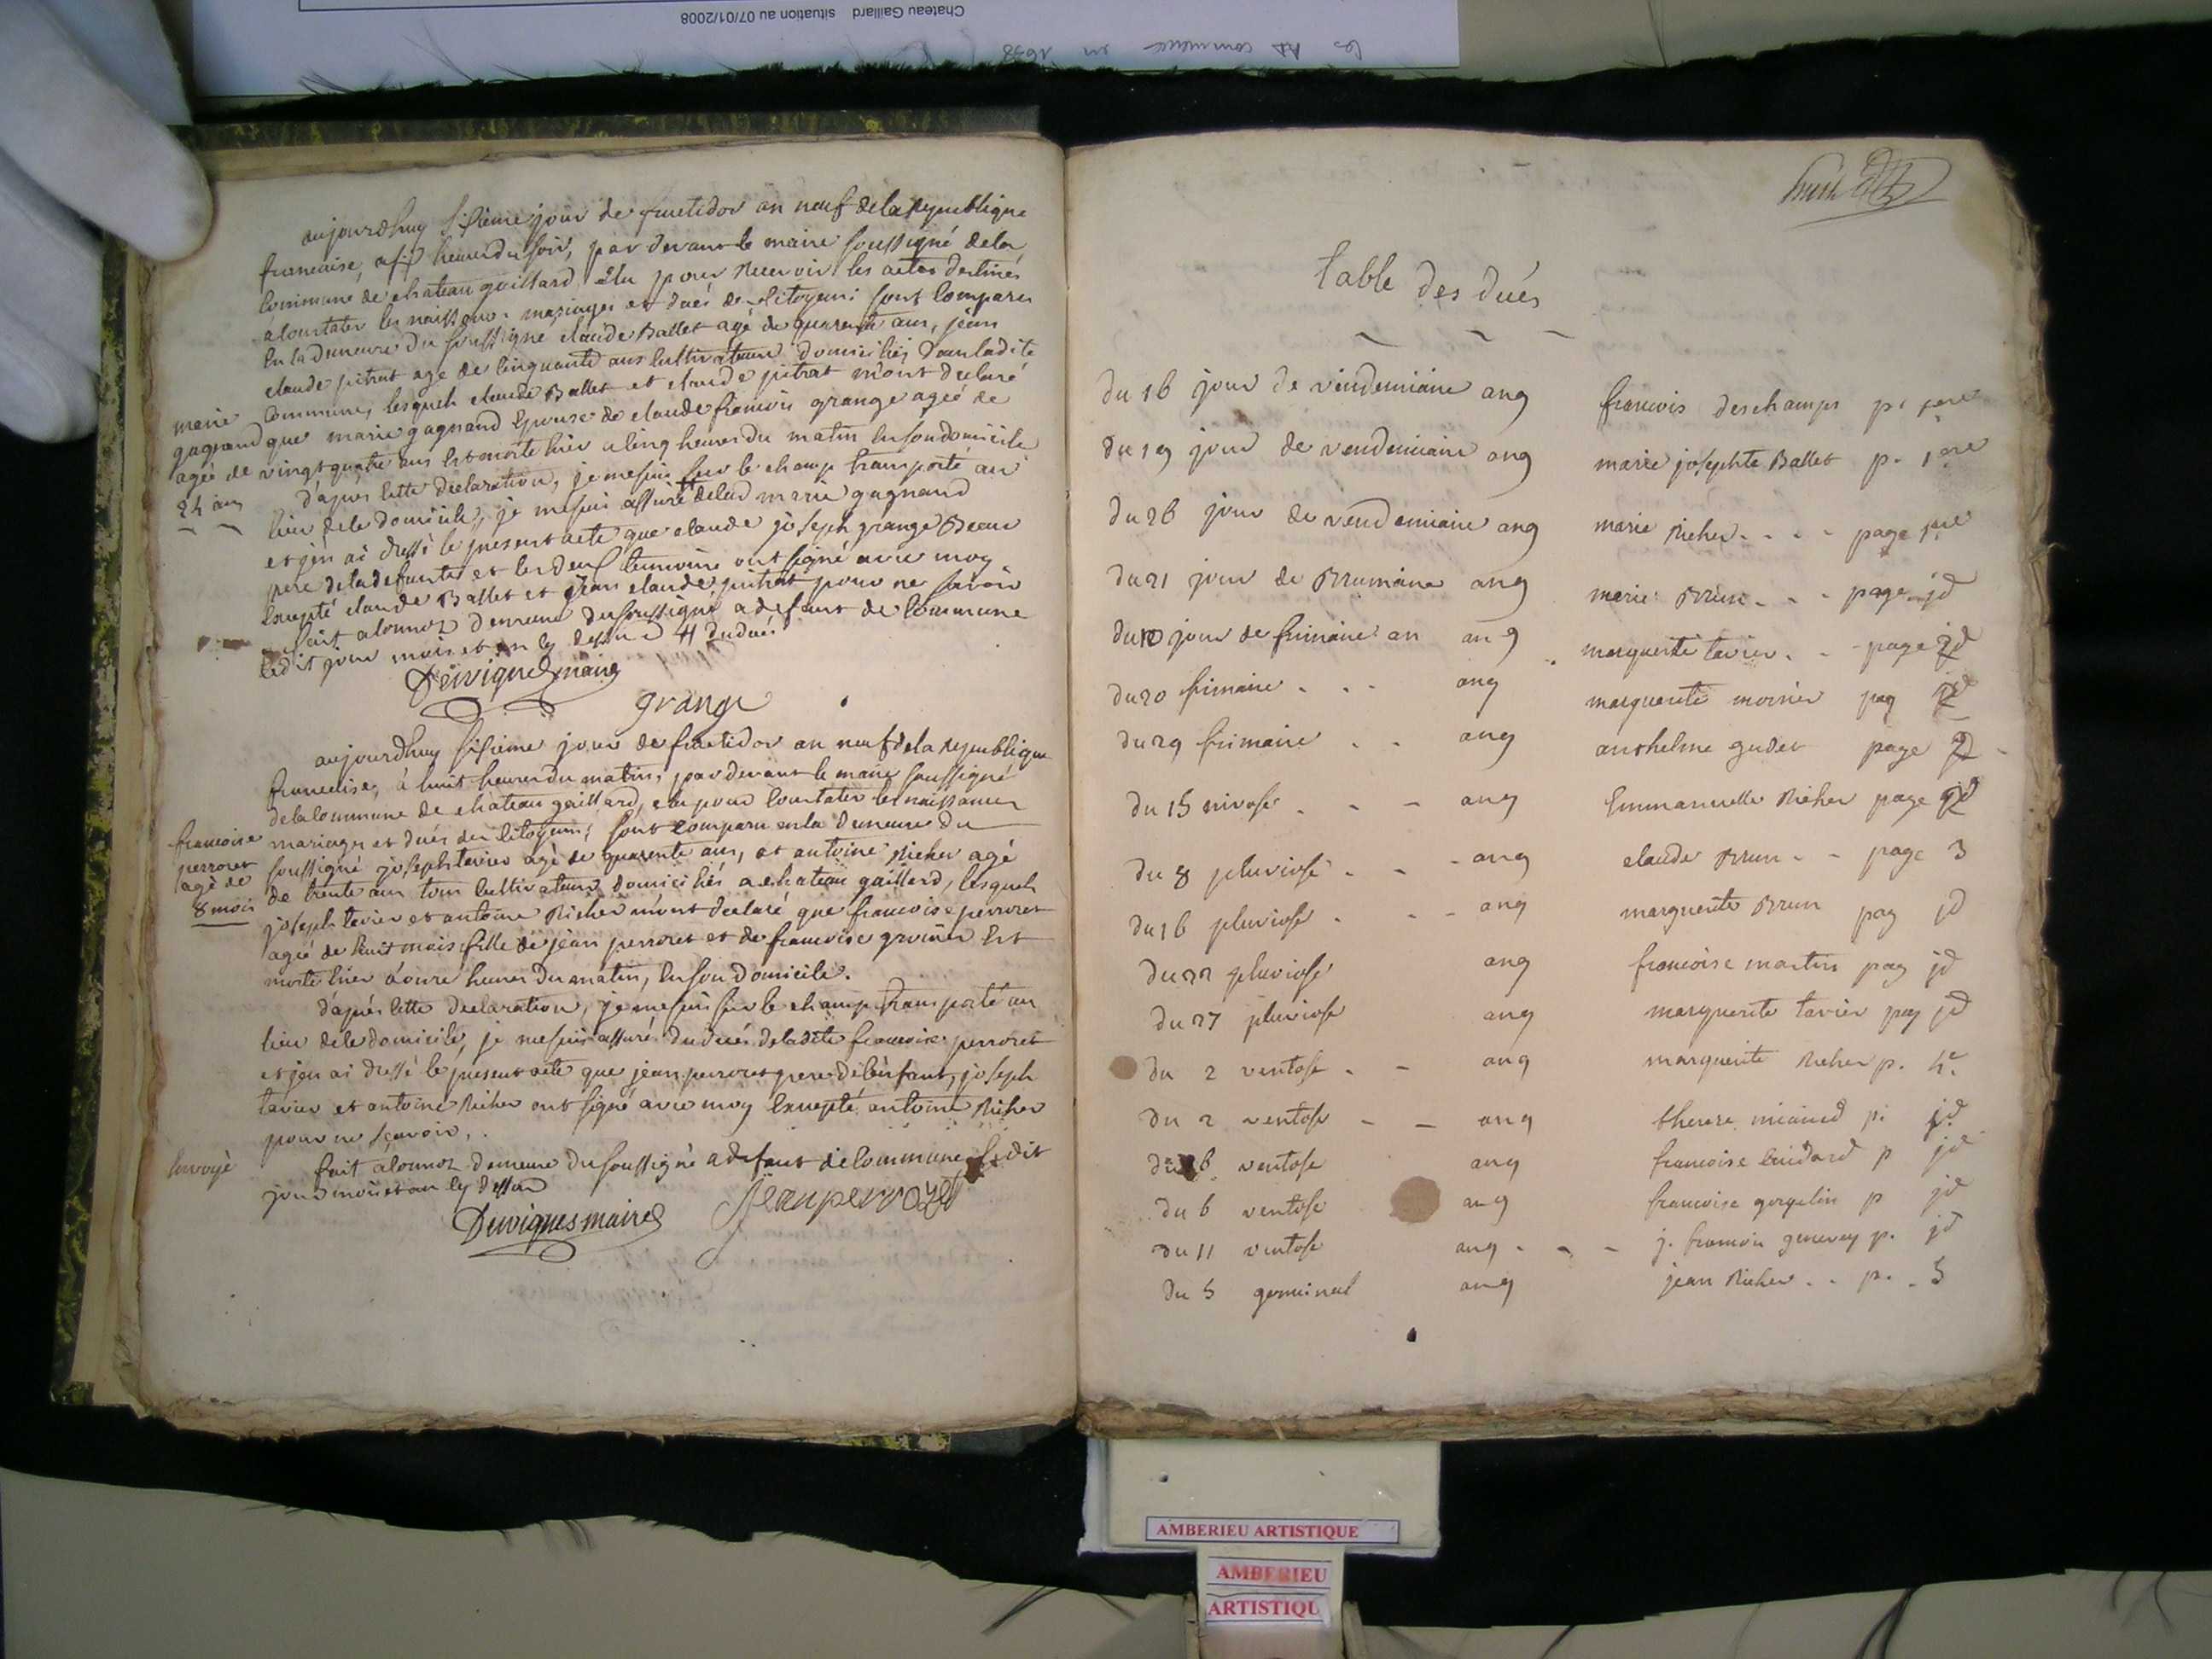 Chateau Gaillard situation au 07/01/2008
les commence en 1698
aujourdhuy sisieme jour de fructidor an neuf dela republique
francaise, a six heures du soir, par devant le maire soussigné dela
commune de chateau gaillard elu pour recevoir les actes destinés
a constater les naissances mariages et dués des citoyens sont comparu
en la demeure du soussigné claude Ballet agé de quarente ans, jean
claude pitrat age de cinquante ans cultivateurs domiciliés dans ladite
commune, lesquels claude Ballet et claude pitrat m'ont declaré
que marie gagnand epouse de claude francois grange agée de
vingt quatre ans est morte hier a cinq heures du matin en son domicile
marie
gagnand
agée de
24 ans
d'apres cette declaration, je me suis sur le champ transporté au
lieu dele domicile, je me suis assuré delad marie gagnand
et jen ai dressé le present acte que claude joseph grange Beau
pere dela defunte et les deux temoins ont signé avec moy
excepté claude Ballet et jean claude pitrat pour ne savoir
fait a cormoz demeure du soussigné a defaut de commune
ledit jour mois et an cy dessus H du dués
Deuvignes maire
grange
aujourdhuy sisieme jour de fructidor an neuf dela republique
francaise, à huit heures du matin, par devant le maire soussigné
dela commune de chateau gaillard, elu pour constater les naissances
mariages et dués des citoyens; sont comparu en la demeure du
soussigné joseph tavier agé de quarente ans, et antoine Richer agé
de trente ans tous cultivateurs domiciliés a chateau gaillard, lesquels
joseph tavier et antoine Richer m'ont declaré que francoise perroset
agée de huit mois fille de jean perroset et de francoise est
morte hier à onze heures du matin, en son domicile.
francoise
perroset
agé de
8 mois
d'aprés cette declaration, je me suis sur le champ transporté au
lieu dele domicile, je me suis assuré du dués deladite francoise perroset
et jen ai dressé le present acte que jean perroset pere de l'enfant, joseph
tavier et antoine Richer ont signé avec moy excepté antoine Richer
pour ne sçavoir,.
envoyé
fait à cormoz demeure du soussigné a defaut de commune ledit
jour mois et an cy dessus
Deuvignes maire
Jean perrozet
table des dués
du 16 jour de vendemiaire an 9 francois deschamps p. 1ere
du 19 jour de vendemiaire an 9 marie josephte Ballet p. 1ere
du 26 jour de vendemiaire an 9 marie Richer - - - - page 1ere
du 21 jour de Brumaire an 9 marie Brun - - - page jd
du 10 jour de frimaire an an 9 marguerite tavier. - - page 2d
du 20 frimaire - - - an 9 marguerite morier pag
du 29 frimaire - - an 9 anthelme gudet page 2
du 15 nivose - - - an 9 Emmanuelle Richer page
du 8 pluviose - - - an 9 claude Brun - - page 3
du 16 pluviose - - - an 9 marguerite Brun pag jd
du 22 pluviose an 9 francoise martin pag jd
du 27 pluviose an 9 marguerite tavier pag jd
du 2 ventose - - an 9 marguerite Richer p. 4e.
du 2 ventose - - an 9 therese p. jd
du 6 ventose an 9 francoise p jd
du 6 ventose an 9 francoise gorgelin p jd
du 11 ventose an 9 - - - j. francois genevey p. jd
du 5 germinal an 9 jean Richer - - p. - 5
AMBERIEU ARTISTIQUE
AMBERIEU
ARTISTIQU